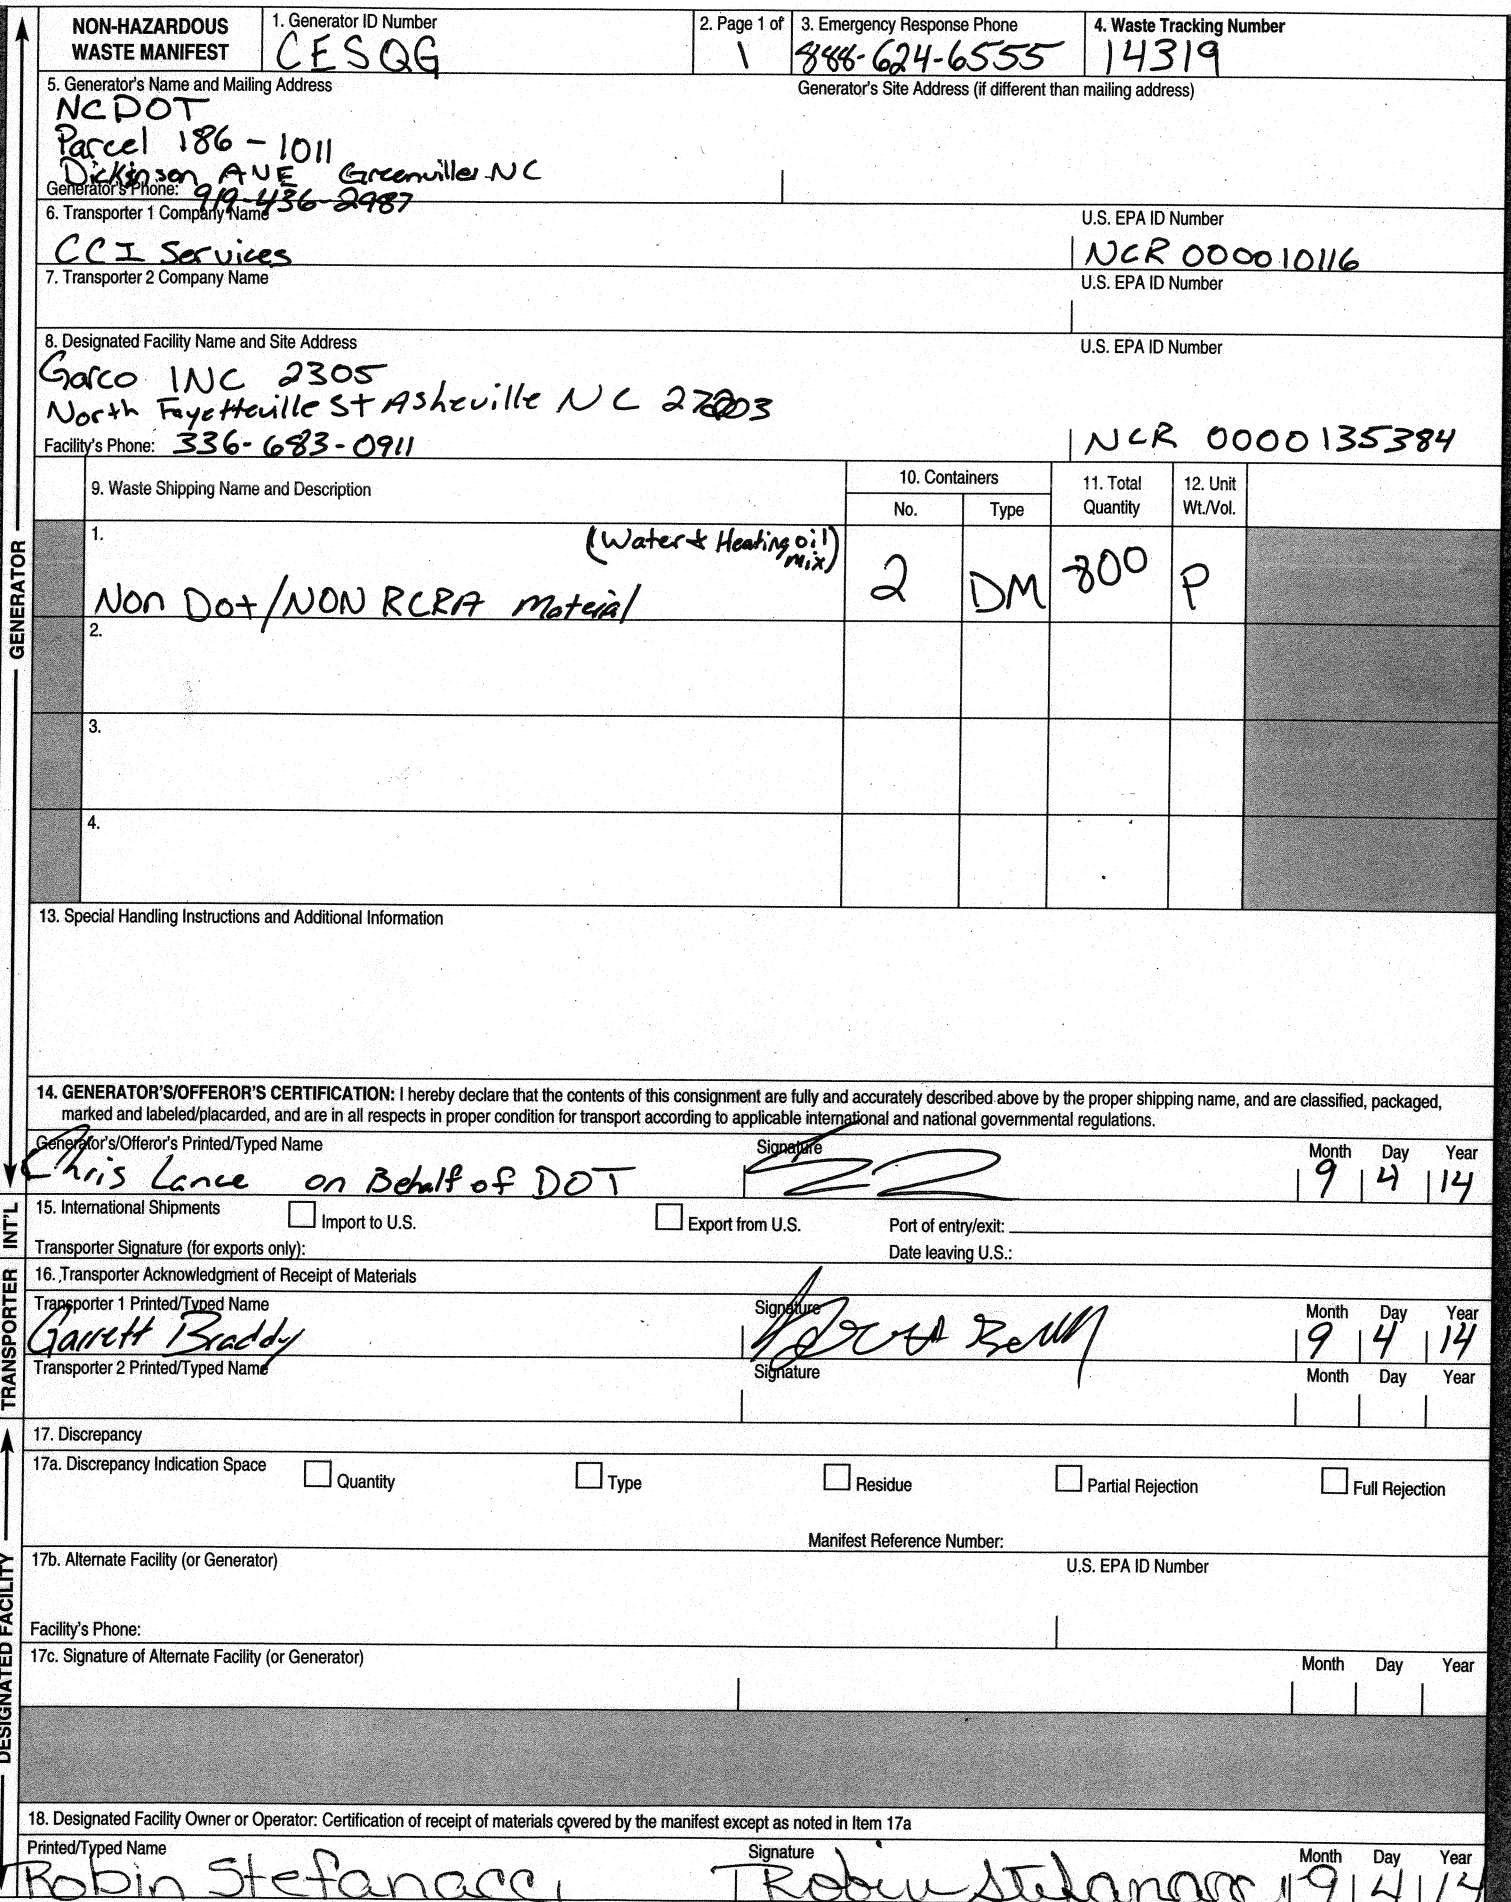 NON-HAZARDOUS WASTE MANIFEST
1. Generator ID Number
CESQG
2. Page 1 of
1
3. Emergency Response Phone
888-624-6555
4. Waste Tracking Number
14319
5. Generator's Name and Mailing Address
Generator's Site Address (if different than mailing address)
NCDOT
Parcel 186 - 1011
Dickinson AVE Greenville NC
Generator's Phone: 919-436-2987
6. Transporter 1 Company Name
U.S. EPA ID Number
CCI Services
NCR 000010116
7. Transporter 2 Company Name
U.S. EPA ID Number
8. Designated Facility Name and Site Address
U.S. EPA ID Number
Garco INC 2305
North Fayetteville St Asheville NC 27203
Facility's Phone: 336-683-0911
NCR 0000135384
9. Waste Shipping Name and Description
10. Containers
No.
Type
11. Total Quantity
12. Unit Wt./Vol.
1.
(Water & Heating oil mix)
Non Dot/NON RCRA Material
2
DM
800
P
2.
3.
4.
13. Special Handling Instructions and Additional Information
14. GENERATOR'S/OFFEROR'S CERTIFICATION: I hereby declare that the contents of this consignment are fully and accurately described above by the proper shipping name, and are classified, packaged,
marked and labeled/placarded, and are in all respects in proper condition for transport according to applicable international and national governmental regulations.
Generator's/Offeror's Printed/Typed Name
Signature
Month Day Year
Chris Lance on Behalf of DOT
9 4 14
15. International Shipments
Import to U.S.
Export from U.S.
Port of entry/exit:
Transporter Signature (for exports only):
Date leaving U.S.:
16. Transporter Acknowledgment of Receipt of Materials
Transporter 1 Printed/Typed Name
Signature
Month Day Year
Garrett Braddy
9 4 14
Transporter 2 Printed/Typed Name
Signature
Month Day Year
17. Discrepancy
17a. Discrepancy Indication Space
Quantity
Type
Residue
Partial Rejection
Full Rejection
Manifest Reference Number:
17b. Alternate Facility (or Generator)
U.S. EPA ID Number
Facility's Phone:
17c. Signature of Alternate Facility (or Generator)
Month Day Year
18. Designated Facility Owner or Operator: Certification of receipt of materials covered by the manifest except as noted in Item 17a
Printed/Typed Name
Signature
Month Day Year
Robin Stefanacci
Robin Stefanacci
9 4 14
GENERATOR
INT'L
TRANSPORTER
DESIGNATED FACILITY